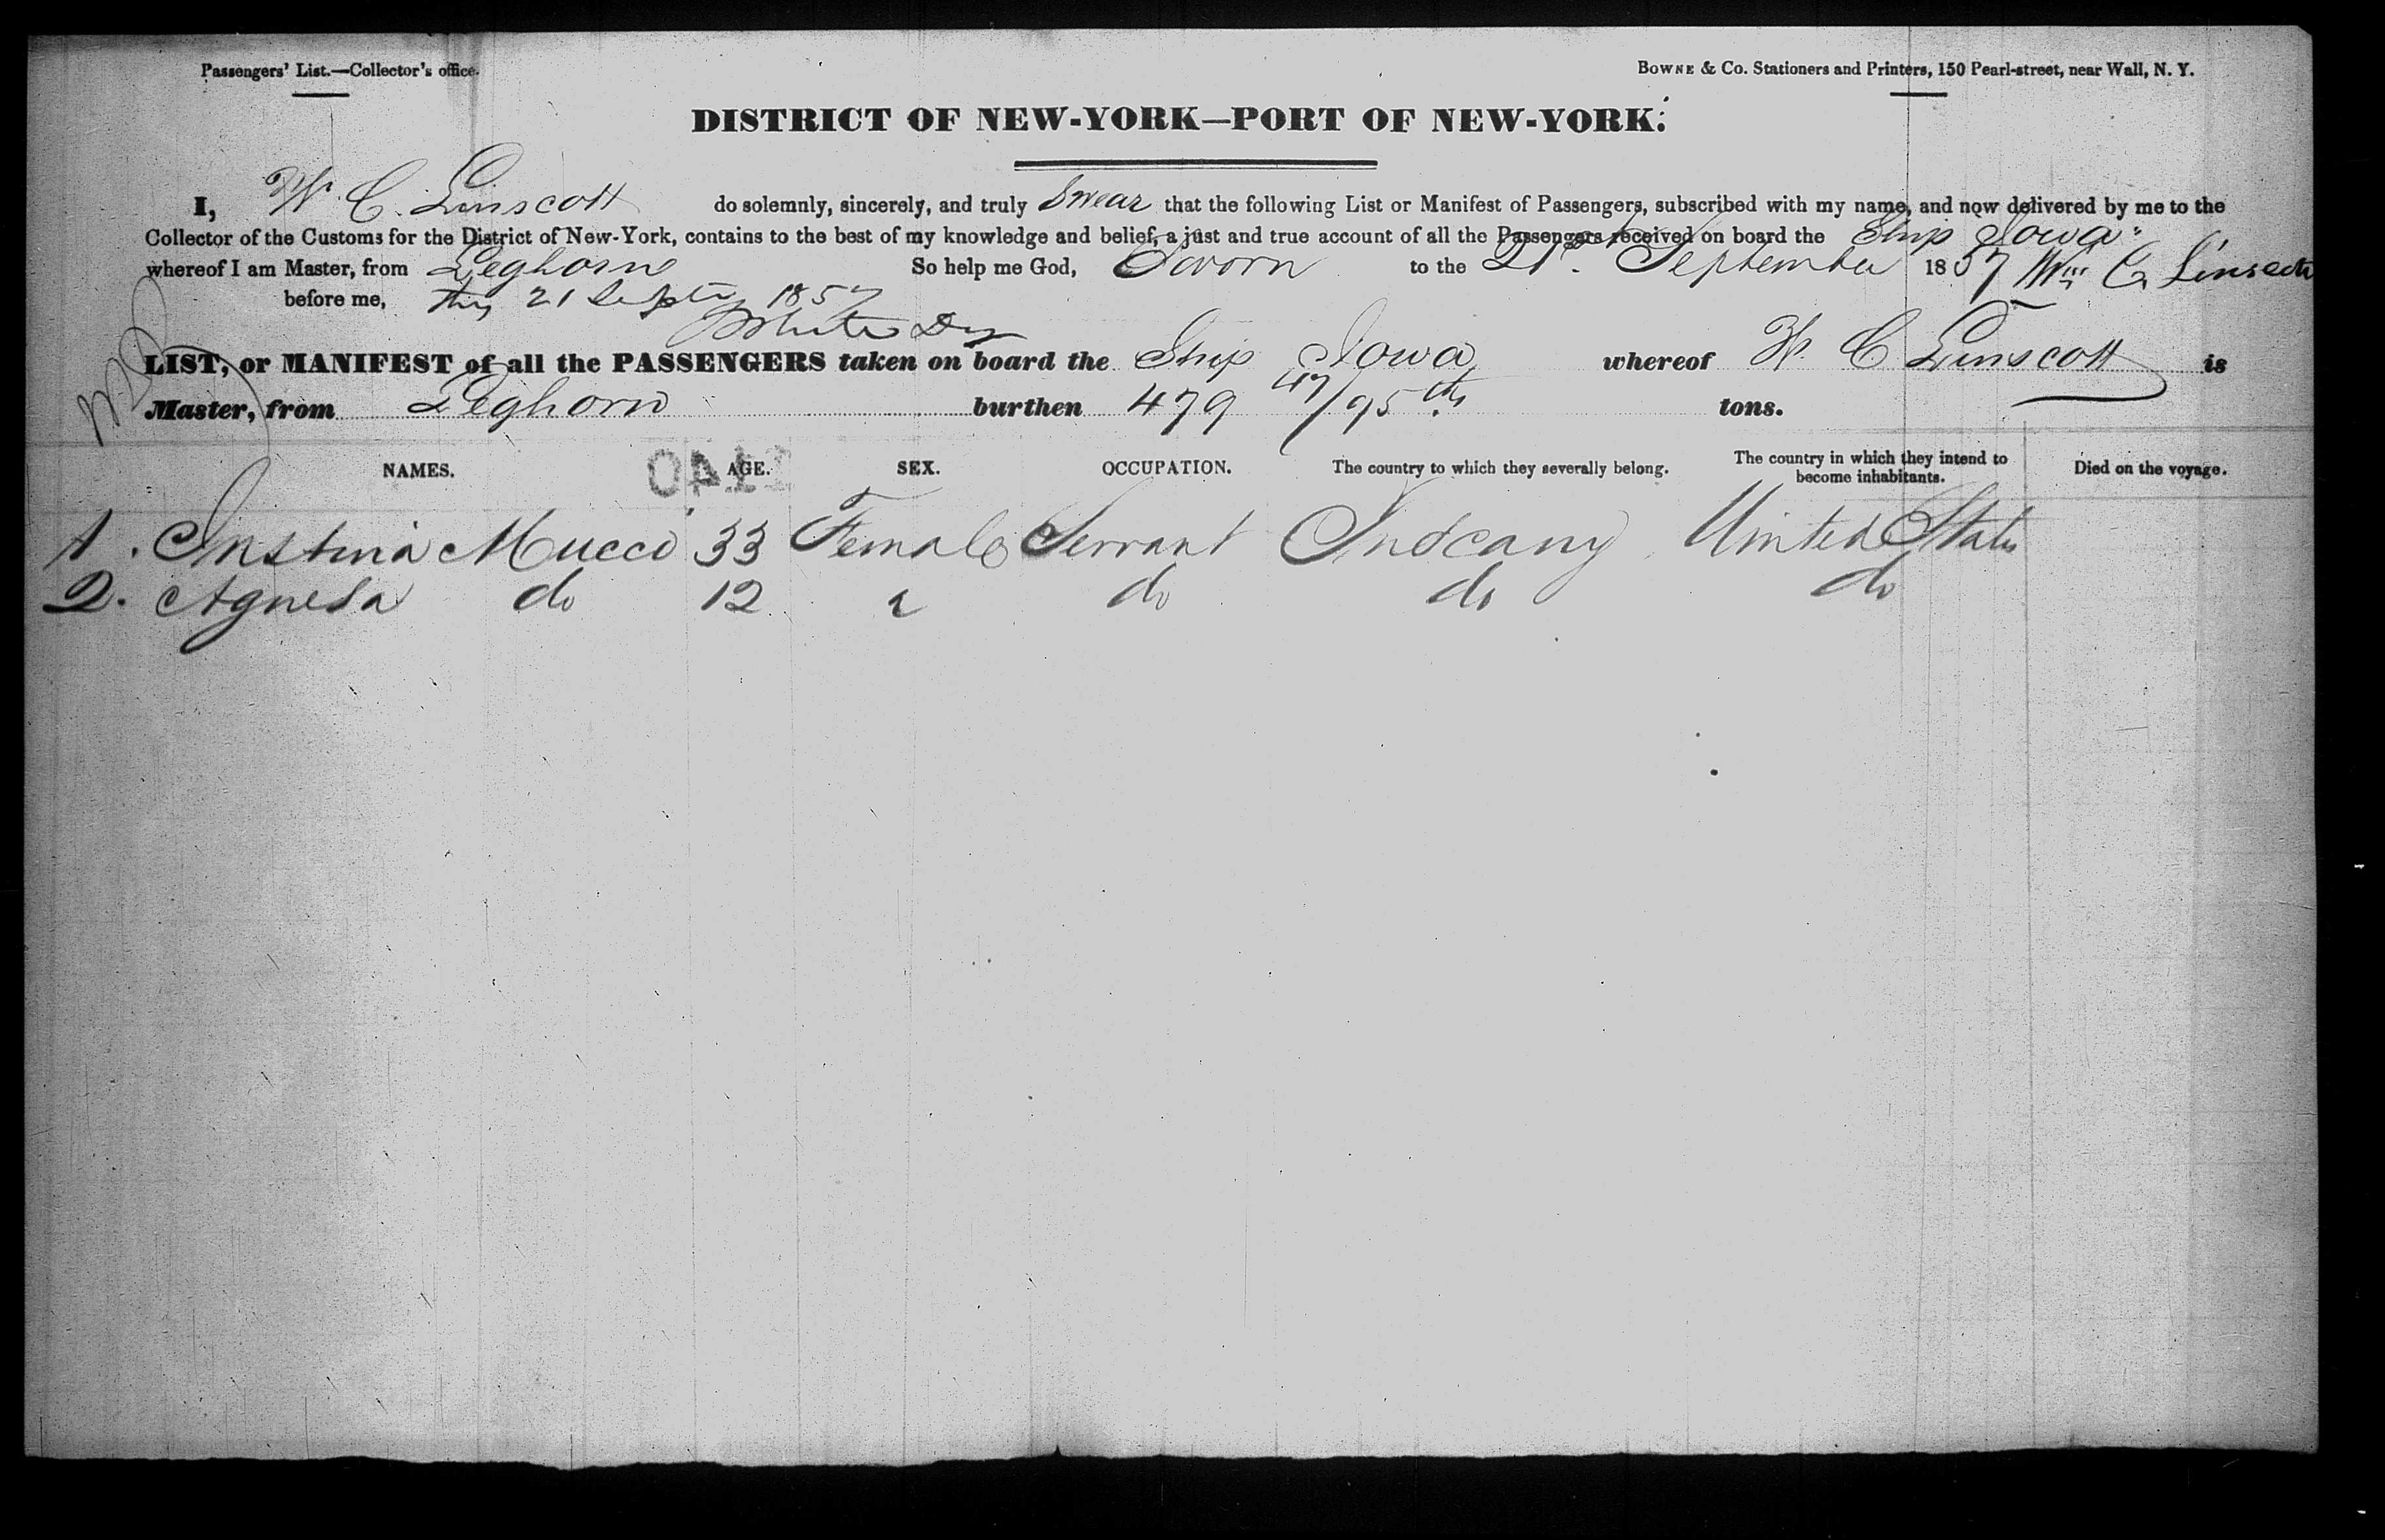 Passengers' List.—Collector's office.
BOWNE & Co. Stationers and Printers, 150 Pearl-street, near Wall, N. Y.
DISTRICT OF NEW-YORK—PORT OF NEW-YORK.
I, W. C. Linscott do solemnly, sincerely, and truly Swear that the following List or Manifest of Passengers, subscribed with my name, and now delivered by me to the
Collector of the Customs for the District of New-York, contains to the best of my knowledge and belief, a just and true account of all the Passengers received on board the Ship Iowa
whereof I am Master, from Leghorn So help me God, Sworn to the 21st. September 1857 Wm C Linscott
before me, this 21 Sept 1857
LIST, or MANIFEST of all the PASSENGERS taken on board the Ship Iowa whereof W. C Linscott is
Master, from Leghorn burthen 479 47/95ths tons.
NAMES. AGE. SEX. OCCUPATION. The country to which they severally belong. The country in which they intend to become inhabitants. Died on the voyage.
1. Mucci 33 Female Servant United States
2. Agnesa do 12 do do do